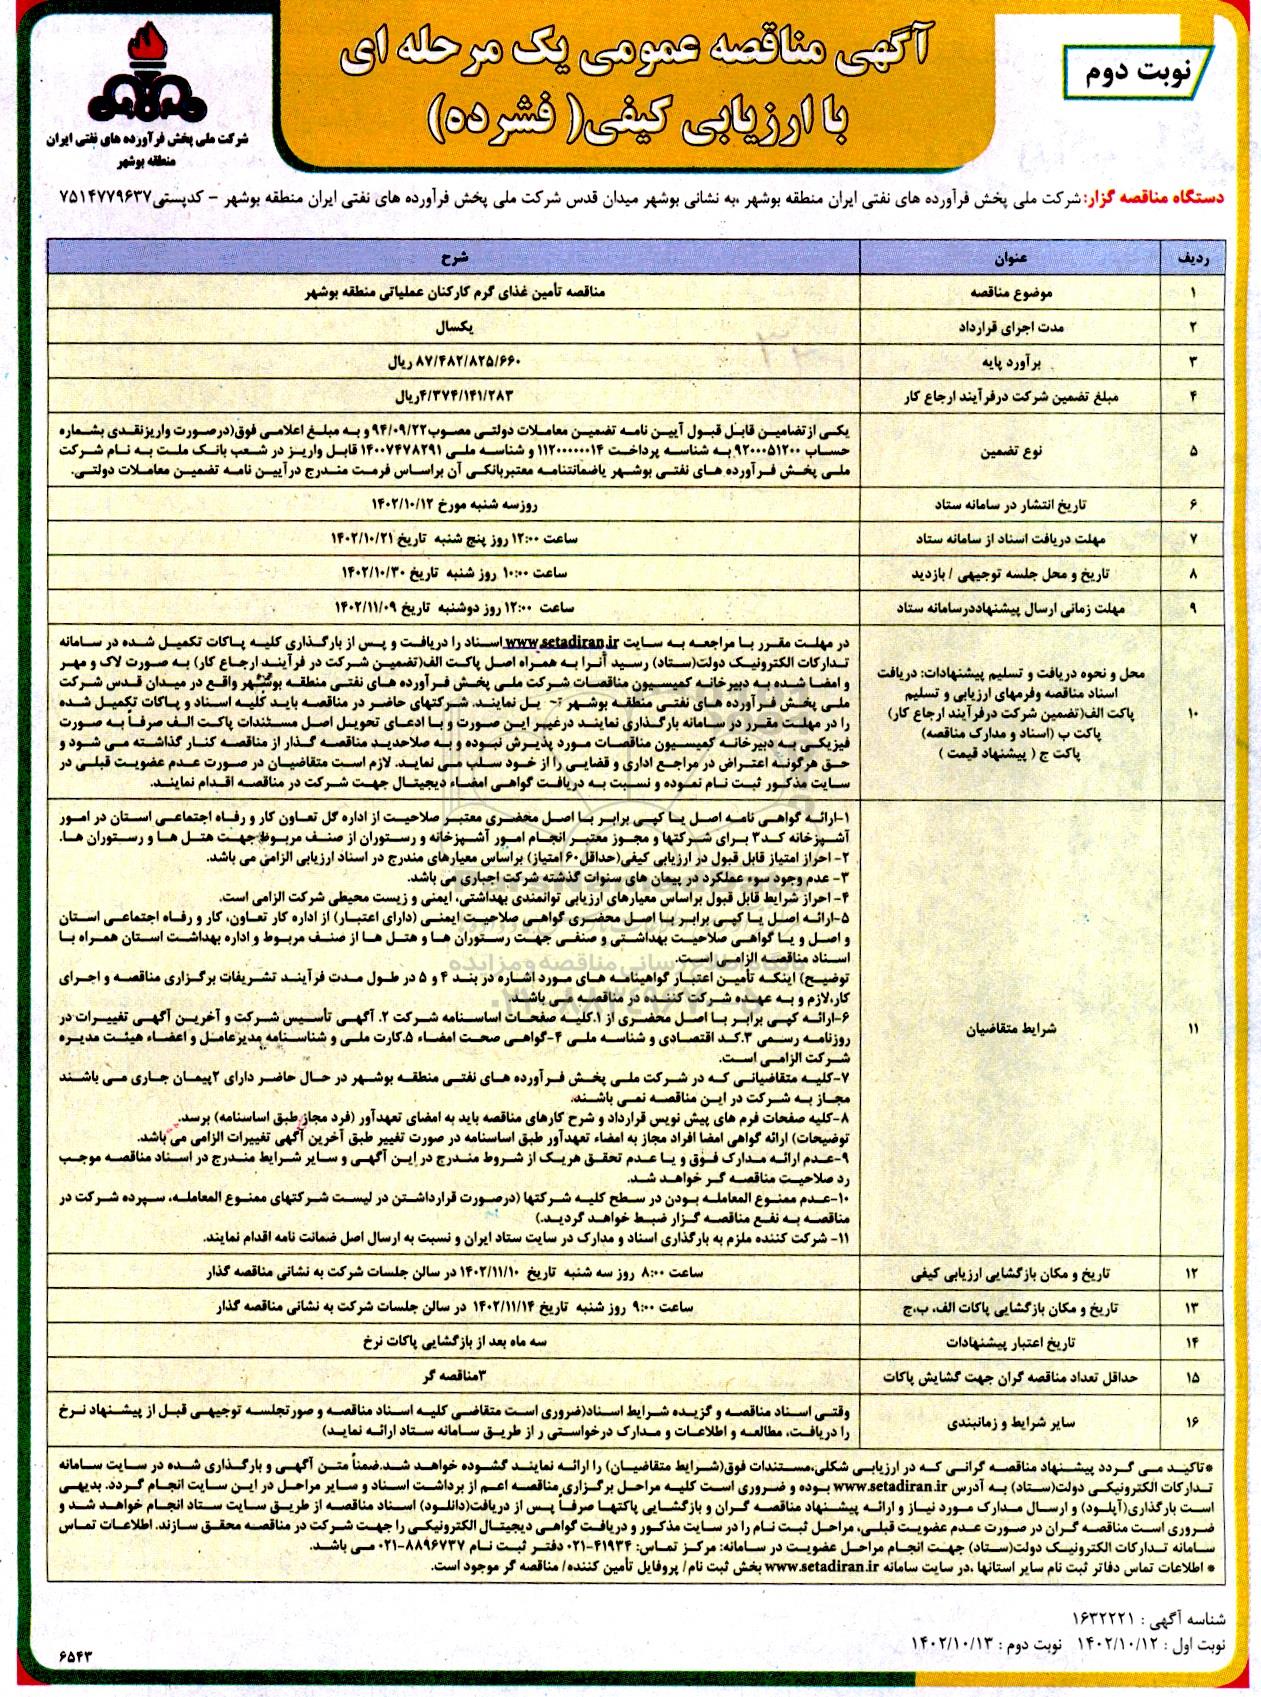 آگهی مناقصه عمومی یک مرحله ای
با ارزیابی کیفی( فشرده)
نوبت دوم
شرکت ملی پخش فرآورده های نفتی ایران
منطقه بوشهر
دستگاه مناقصه گزار: شرکت ملی پخش فرآورده های نفتی ایران منطقه بوشهر ،به نشانی بوشهر میدان قدس شرکت ملی پخش فرآورده های نفتی ایران منطقه بوشهر – کدپستی۷۵۱۴۷۷۹۶۳۷
ردیف عنوان شرح
۱ موضوع مناقصه مناقصه تأمین غذای گرم کارکنان عملیاتی منطقه بوشهر
۲ مدت اجرای قرارداد یکسال
۳ برآورد پایه ۸۷/۴۸۲/۸۲۵/۶۶۰ ریال
۴ مبلغ تضمین شرکت درفرآیند ارجاع کار ۴/۳۷۴/۱۴۱/۲۸۳ریال
۵ نوع تضمین
یکی ازتضامین قابل قبول آیین نامه تضمین معاملات دولتی مصوب۹۴/۰۹/۲۲ و به مبلغ اعلامی فوق(درصورت واریزنقدی بشماره
حساب ۹۲۰۰۰۵۱۲۰۰ به شناسه پرداخت ۱۱۲۰۰۰۰۰۰۱۴ و شناسه ملی ۱۴۰۰۷۴۷۸۲۹۱ قابل واریز در شعب بانک ملت به نام شرکت
ملی پخش فرآورده های نفتی بوشهر یاضمانتنامه معتبربانکی آن براساس فرمت مندرج درآیین نامه تضمین معاملات دولتی.
۶ تاریخ انتشار در سامانه ستاد روزسه شنبه مورخ ۱۴۰۲/۱۰/۱۲
۷ مهلت دریافت اسناد از سامانه ستاد ساعت ۱۲:۰۰ روز پنج شنبه تاریخ ۱۴۰۲/۱۰/۲۱
۸ تاریخ و محل جلسه توجیهی / بازدید ساعت ۱۰:۰۰ روز شنبه تاریخ ۱۴۰۲/۱۰/۳۰
۹ مهلت زمانی ارسال پیشنهاددرسامانه ستاد ساعت ۱۲:۰۰ روز دوشنبه تاریخ ۱۴۰۲/۱۱/۰۹
۱۰
محل و نحوه دریافت و تسلیم پیشنهادات: دریافت
اسناد مناقصه وفرمهای ارزیابی و تسلیم
پاکت الف(تضمین شرکت درفرآیند ارجاع کار)
پاکت ب (اسناد و مدارک مناقصه)
پاکت ج ( پیشنهاد قیمت )
در مهلت مقرر با مراجعه به سایت www.setadiran.ir اسناد را دریافت و پس از بارگذاری کلیه پاکات تکمیل شده در سامانه
تدارکات الکترونیک دولت(ستاد) رسید آنرا به همراه اصل پاکت الف(تضمین شرکت در فرآیند ارجاع کار) به صورت لاک و مهر
و امضا شده به دبیرخانه کمیسیون مناقصات شرکت ملی پخش فرآورده های نفتی منطقه بوشهر واقع در میدان قدس شرکت
ملی پخش فرآورده های نفتی منطقه بوشهر یل نمایند. شرکتهای حاضر در مناقصه باید کلیه اسناد و پاکات تکمیل شده
را در مهلت مقرر در سامانه بارگذاری نمایند درغیر این صورت و با ادعای تحویل اصل مستندات پاکت الف صرفاً به صورت
فیزیکی به دبیرخانه کمیسیون مناقصات مورد پذیرش نبوده و به صلاحدید مناقصه گذار از مناقصه کنار گذاشته می شود و
حق هرگونه اعتراض در مراجع اداری و قضایی را از خود سلب می نماید. لازم است متقاضیان در صورت عدم عضویت قبلی در
سایت مذکور ثبت نام نموده و نسبت به دریافت گواهی امضاء دیجیتال جهت شرکت در مناقصه اقدام نمایند.
۱۱ شرایط متقاضیان
۱-ارائه گواهی نامه اصل یا کپی برابر با اصل محضری معتبر صلاحیت از اداره کل تعاون کار و رفاه اجتماعی استان در امور
آشپزخانه کد۳ برای شرکتها و مجوز معتبر انجام امور آشپزخانه و رستوران از صنف مربوط جهت هتل ها و رستوران ها.
۲- احراز امتیاز قابل قبول در ارزیابی کیفی(حداقل۶۰ امتیاز) براساس معیارهای مندرج در اسناد ارزیابی الزامی می باشد.
۳- عدم وجود سوء عملکرد در پیمان های سنوات گذشته شرکت اجباری می باشد.
۴- احراز شرایط قابل قبول براساس معیارهای ارزیابی توانمندی بهداشتی، ایمنی و زیست محیطی شرکت الزامی است.
۵-ارائه اصل یا کپی برابر با اصل محضری گواهی صلاحیت ایمنی (دارای اعتبار) از اداره کار تعاون، کار و رفاه اجتماعی استان
و اصل و یا گواهی صلاحیت بهداشتی و صنفی جهت رستوران ها و هتل ها از صنف مربوط و اداره بهداشت استان همراه با
اسناد مناقصه الزامی است.
توضیح) اینکه تأمین اعتبار گواهینامه های مورد اشاره در بند ۴ و ۵ در طول مدت فرآیند تشریفات برگزاری مناقصه و اجرای
کار،لازم و به عهده شرکت کننده در مناقصه می باشد.
۶-ارائه کپی برابر با اصل محضری از ۱.کلیه صفحات اساسنامه شرکت ۲. آگهی تأسیس شرکت و آخرین آگهی تغییرات در
روزنامه رسمی ۳.کد اقتصادی و شناسه ملی ۴-گواهی صحت امضاء ۵.کارت ملی و شناسنامه مدیرعامل و اعضاء هیئت مدیره
شرکت الزامی است.
۷-کلیه متقاضیانی که در شرکت ملی پخش فرآورده های نفتی منطقه بوشهر در حال حاضر دارای ۲پیمان جاری می باشند
مجاز به شرکت در این مناقصه نمی باشند.
۸-کلیه صفحات فرم های پیش نویس قرارداد و شرح کارهای مناقصه باید به امضای تعهدآور (فرد مجاز طبق اساسنامه) برسد.
توضیحات) ارائه گواهی امضا افراد مجاز به امضاء تعهدآور طبق اساسنامه در صورت تغییر طبق آخرین آگهی تغییرات الزامی می باشد.
۹-عدم ارائه مدارک فوق و یا عدم تحقق هریک از شروط مندرج در این آگهی و سایر شرایط مندرج در اسناد مناقصه موجب
رد صلاحیت مناقصه گر خواهد شد.
۱۰-عدم ممنوع المعامله بودن در سطح کلیه شرکتها (درصورت قرارداشتن در لیست شرکتهای ممنوع المعامله، سپرده شرکت در
مناقصه به نفع مناقصه گزار ضبط خواهد گردید.)
۱۱- شرکت کننده ملزم به بارگذاری اسناد و مدارک در سایت ستاد ایران و نسبت به ارسال اصل ضمانت نامه اقدام نمایند.
۱۲ تاریخ و مکان بازگشایی ارزیابی کیفی ساعت ۸:۰۰ روز سه شنبه تاریخ ۱۴۰۲/۱۱/۱۰ در سالن جلسات شرکت به نشانی مناقصه گذار
۱۳ تاریخ و مکان بازگشایی پاکات الف، ب،ج ساعت ۹:۰۰ روز شنبه تاریخ ۱۴۰۲/۱۱/۱۴ در سالن جلسات شرکت به نشانی مناقصه گذار
۱۴ تاریخ اعتبار پیشنهادات سه ماه بعد از بازگشایی پاکات نرخ
۱۵ حداقل تعداد مناقصه گران جهت گشایش پاکات ۳مناقصه گر
۱۶ سایر شرایط و زمانبندی
وقتی اسناد مناقصه و گزیده شرایط اسناد(ضروری است متقاضی کلیه اسناد مناقصه و صورتجلسه توجیهی قبل از پیشنهاد نرخ
را دریافت، مطالعه و اطلاعات و مدارک درخواستی را از طریق سامانه ستاد ارائه نماید)
*تاکید می گردد پیشنهاد مناقصه گرانی که در ارزیابی شکلی،مستندات فوق(شرایط متقاضیان) را ارائه نمایند گشوده خواهد شد.ضمناً متن آگهی و بارگذاری شده در سایت سامانه
تدارکات الکترونیکی دولت(ستاد) به آدرس www.setadiran.ir بوده و ضروری است کلیه مراحل برگزاری مناقصه اعم از برداشت اسناد و سایر مراحل در این سایت انجام گردد. بدیهی
است بارگذاری(آپلود) و ارسال مدارک مورد نیاز و ارائه پیشنهاد مناقصه گران و بازگشایی پاکتها صرفاً پس از دریافت(دانلود) اسناد مناقصه از طریق سایت ستاد انجام خواهد شد و
ضروری است مناقصه گران در صورت عدم عضویت قبلی، مراحل ثبت نام را در سایت مذکور و دریافت گواهی دیجیتال الکترونیکی را جهت شرکت در مناقصه محقق سازند. اطلاعات تماس
سامانه تدارکات الکترونیک دولت(ستاد) جهت انجام مراحل عضویت در سامانه: مرکز تماس: ۴۱۹۳۴-۰۲۱ دفتر ثبت نام ۸۸۹۶۷۳۷-۰۲۱ می باشد.
* اطلاعات تماس دفاتر ثبت نام سایر استانها ،در سایت سامانه www.setadiran.ir بخش ثبت نام/ پروفایل تأمین کننده/ مناقصه گر موجود است.
شناسه آگهی : ۱۶۳۲۲۲۱
نوبت اول : ۱۴۰۲/۱۰/۱۲ نوبت دوم : ۱۴۰۲/۱۰/۱۳
۶۵۴۳